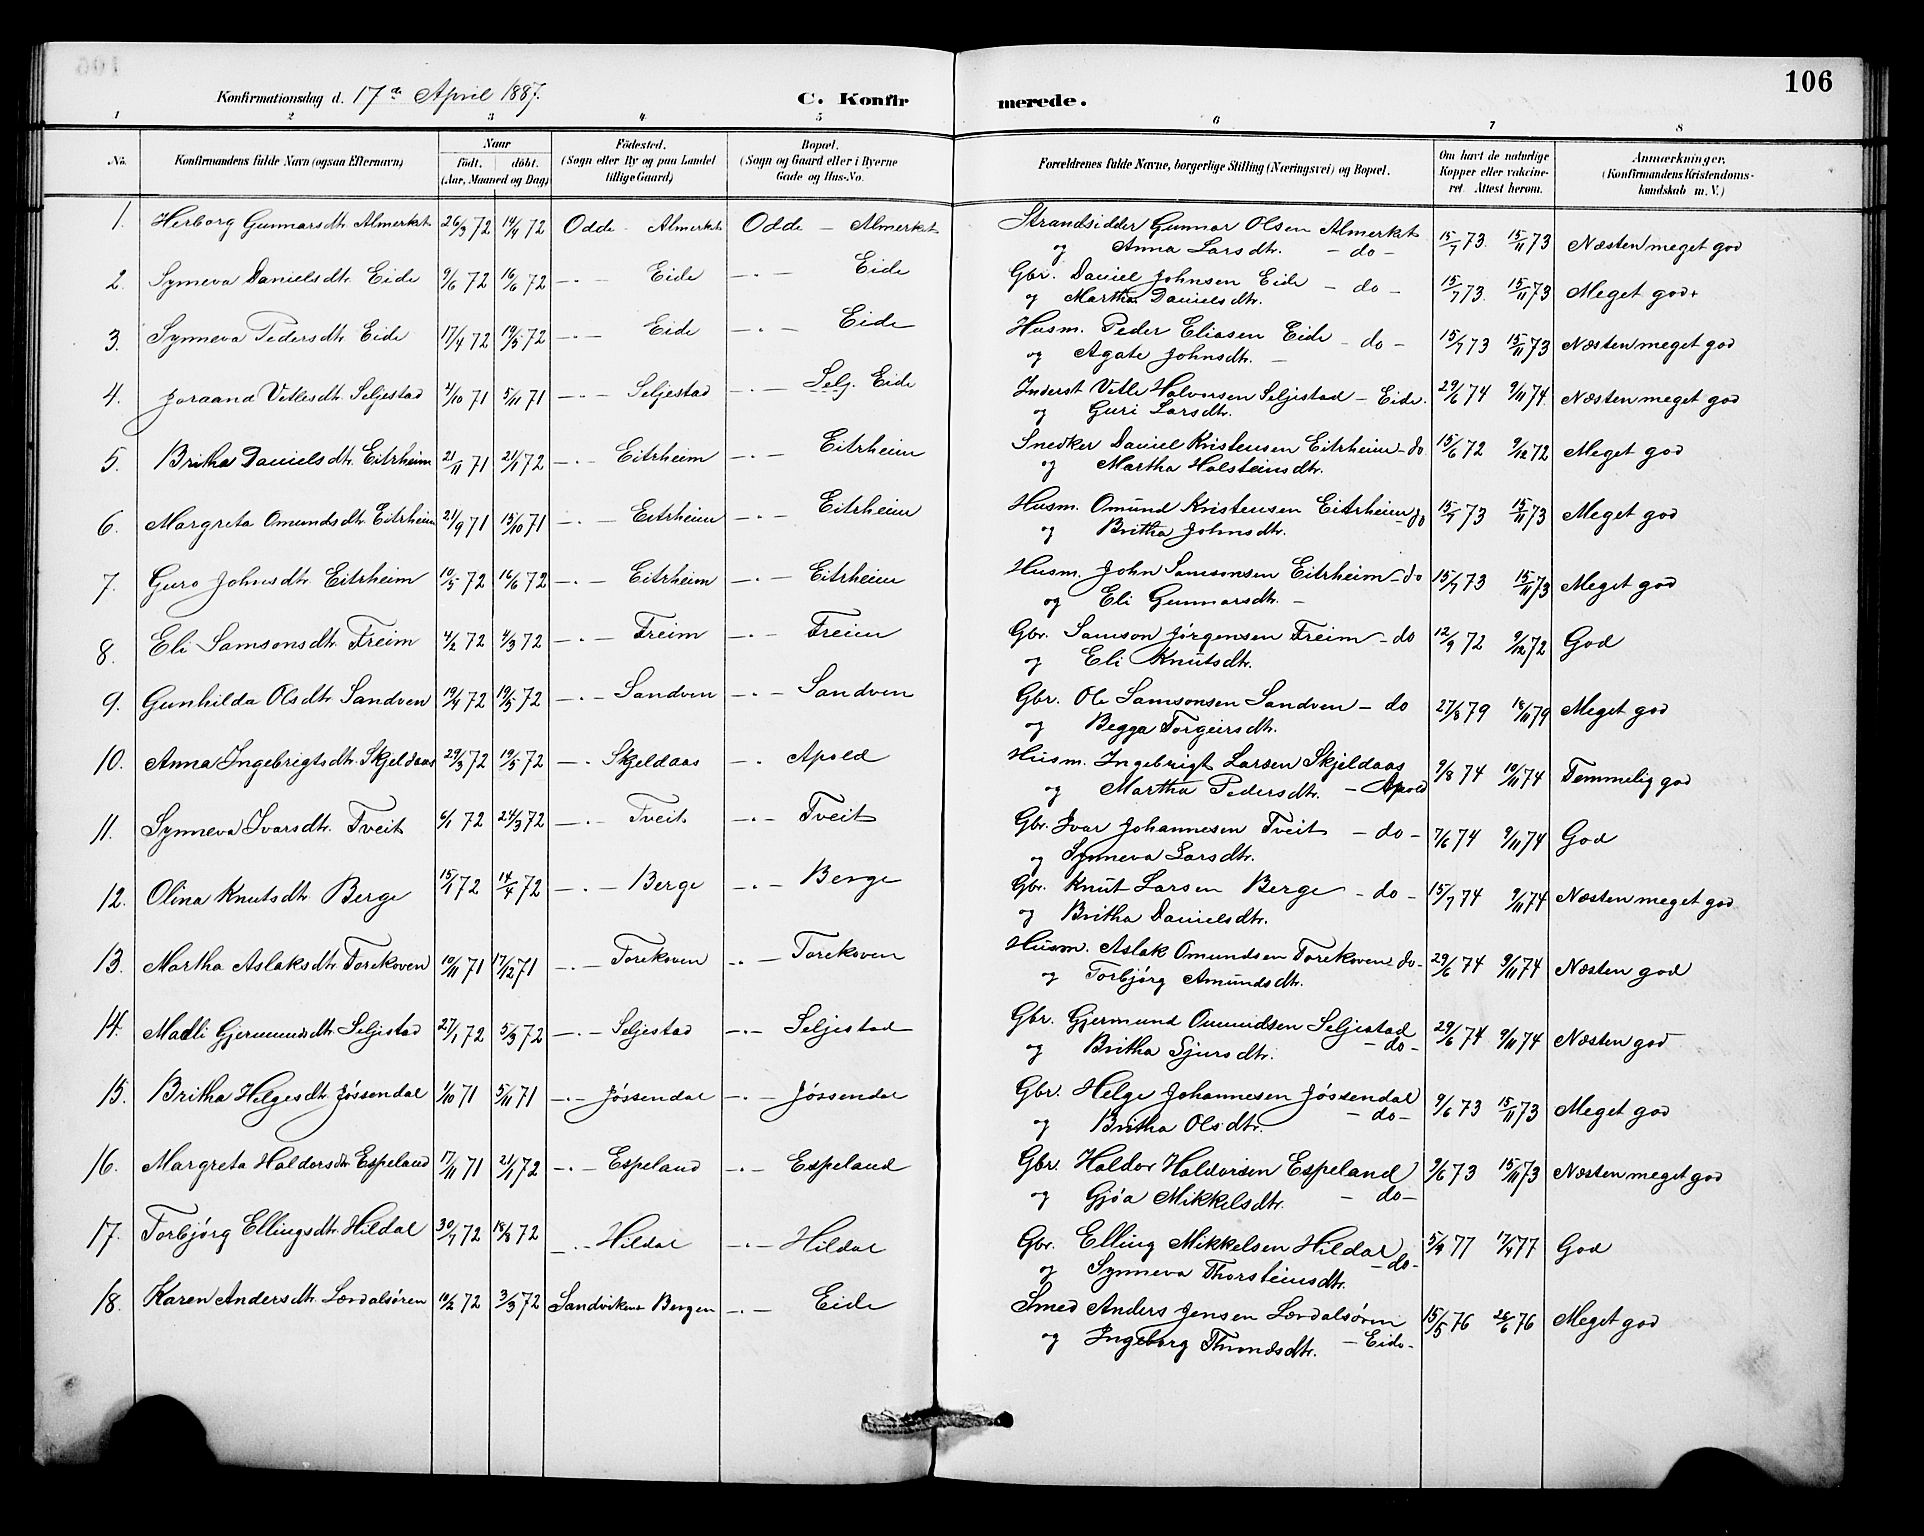 106
Konfirmationsdag d. 17de April 1887.
C. Konfirmerede.
1 2 3 4 5 6 7 8
No. | Konfirmandens fulde Navn (ogsaa Efternavn) | Naar født. døbt. (Aar, Maaned og Dag) | Fødested. (Sogn eller By og paa Landet tillige Gaard) | Bopæl. (Sogn og Gaard eller i Byerne Gade og Hus-No. | Forældrenes fulde Navne, borgerlige Stilling (Næringsvei) og Bopæl. | Om havt de naturlige Kopper eller vakcineret. Attest herom. | Anmærkninger. (Konfirmandens Kristendomskundskab m. V.)
1. Herborg Gunnarsdtr. Almerket 26/3 72 14/4 72 Odde - Almerket Odde - Almerket Strandsidder Gunnar Olsen Almerket 15/7 73. 15/11 73 Næsten meget god
og Anna Larsdtr. - do -
2. Synneva Danielsdtr. Eide 9/6 72 16/6 72 -"- Eide -"- Eide Gbr. Daniel Johnsen Eide - do - 15/7 73. 15/11 73 Meget god
og Martha Danielsdtr.
3. Synneva Pedersdtr. Eide 17/4 72 19/5 72 -"- Eide -"- Eide Husm. Peder Eliasen Eide - do - 15/7 73 15/11 73 Næsten meget god
og Agate Johnsdtr. -
4. Joraand Vetlesdtr. Seljestad 4/10 71 5/11 71 -"- Seljestad -"- Selj. Eide Inderst Vetle Halvorsen Seljestad - Eide. 29/6 74 9/11 74. Næsten meget god
og Guri Larsdtr.
5. Britha Danielsdtr. Eitrheim 21/11 71 21/1 72 -"- Eitrheim -"- Eitrheim Snedker Daniel Kristensen Eitrheim - do 15/6 72 9/12 72 Meget god
og Martha Holsteinsdtr.
6. Margreta Omundsdtr. Eitrheim 21/9 71 15/10 71 -"- Eitrheim -"- Eitrheim Husm. Omund Kristensen Eitrheim - do 15/7 73 15/11 73 Meget god
og Britha Johnsdtr.
7. Guro Johnsdtr. Eitrheim 10/5 72 16/6 72 -"- Eitrheim -"- Eitrheim Husm. John Samsonsen Eitrheim - do 15/7 73 15/11 73 Meget god
og Eli Gunnarsdtr. -
8. Eli Samsonsdtr. Freim 4/2 72 4/3 72 -"- Freim -"- Freim Gbr. Samson Jørgensen Freim - do 12/9 72 9/12 72 God
og Eli Knutsdtr.
9. Gunhilda Olsdtr. Sandven 19/4 72 19/5 72 -"- Sandven -"- Sandven Gbr. Ole Samsonsen Sandven - do 27/8 79 18/11 79 Meget god
og Begga Torgeirsdtr.
10. Anna Ingebrigtsdtr. Skjeldaas 29/3 72 19/5 72 -"- Skjeldaas -"- Apold Husm. Ingebrigt Larsen Skjeldaas 9/8 74 10/11 74 Temmelig god
og Martha Pedersdtr. - Apold
11. Synneva Ivarsdtr. Tveit 6/1 72 24/3 72 -"- Tveit -"- Tveit Gbr. Ivar Johannesen Tveit - do - 7/6 74 9/11 74 God
og Synneva Larsdtr.
12. Olina Knutsdtr. Berge 15/1 72 14/4 72 -"- Berge -"- Berge Gbr. Knut Larsen Berge - do - 15/7 74 9/11 74 Næsten meget god
og Britha Danielsdtr.
13. Martha Aslaksdtr. Torekoven 10/11 71 17/12 71 -"- Torekoven -"- Torekoven Husm. Aslak Omundsen Torekoven do- 29/6 74 9/11 74 Næsten god
og Torbjørg Amundsdtr.
14. Madli Gjermundsdtr. Seljestad 27/1 72 5/3 72 -"- Seljestad -"- Seljestad Gbr. Gjermund Omundsen Seljestad 29/6 74 9/11 74 Næsten god
og Britha Sjursdtr. - do -
15. Britha Helgesdtr. Jøssendal 1/10 71 5/11 71 -"- Jøssendal -"- Jøssendal Gbr. Helge Johannesen Jøssendal 9/6 73 15/11 73 Meget god
og Britha Olsdtr. - do -
16. Margreta Haldorsdtr. Espeland 17/11 71 21/1 72 -"- Espeland -"- Espeland Gbr. Haldor Haldorsen Espeland 9/6 73 15/11 73 Næsten meget god
og Gjøa Mikkelsdtr. - do -
17. Torbjørg Ellingsdtr. Hildal 30/7 72 18/8 72 -"- Hildal -"- Hildal Gbr. Elling Mikkelsen Hildal 5/9 77 17/9 77 God
og Synneva Thorsteinsdtr. - do -
18. Karen Andersdtr. Lærdalsøren 10/2 72 3/3 72 Sandviken Bergen -"- Eide Smed Anders Jensen Lærdalsøren 15/5 76 26/6 76 Meget god
og Ingeborg Throndsdtr. - Eide -